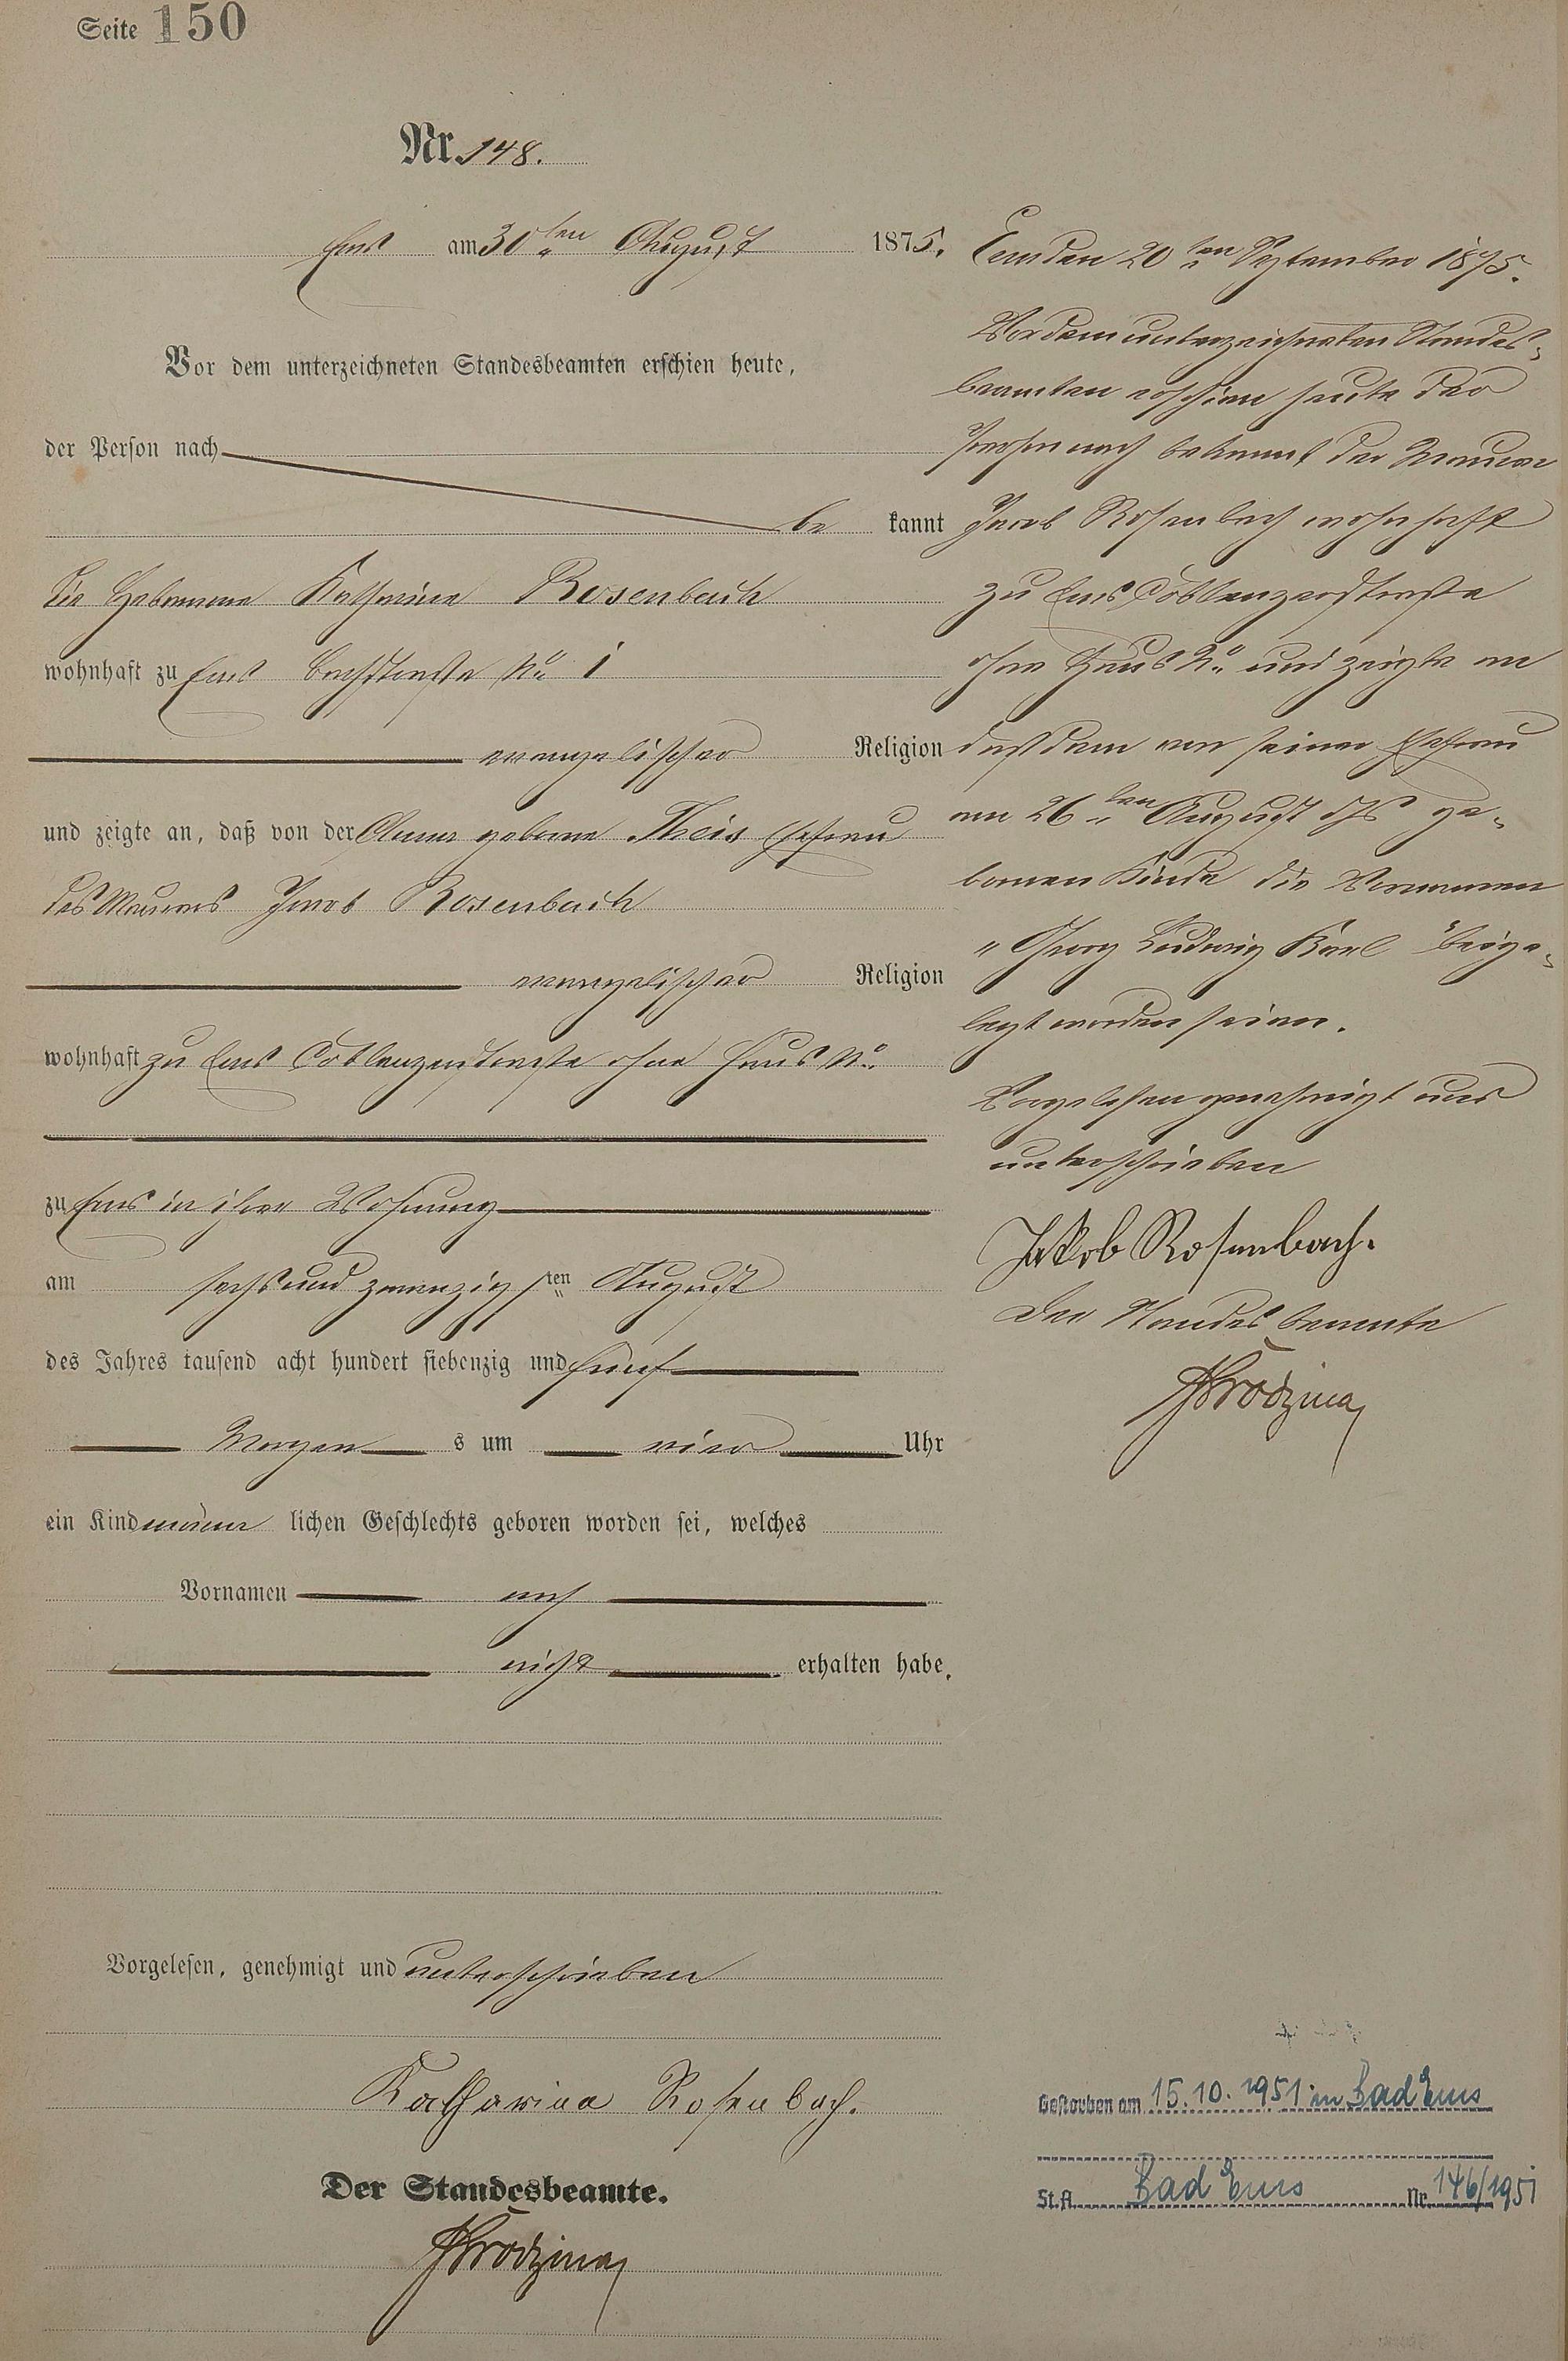 Seite 150
Nr. 148.
Ems am 30ten August 1875.
Vor dem unterzeichneten Standesbeamten erschien heute,
der Person nach
be kannt
die Hebamme Katharina Rosenbach
wohnhaft zu Ems Bachstraße No 1
evangelischer Religion
und zeigte an, daß von der Anna geborne Theis Ehefrau
des Maurers Jacob Rosenbach
evangelischer Religion
wohnhaft zu Ems Coblenzerstraße ohne Haus No
zu Ems in ihrer Wohnung
am sechs und zwanzigsten August
des Jahres tausend acht hundert siebenzig und fünf
Morgens um vier Uhr
ein Kind männlichen Geschlechts geboren worden sei, welches
Vornamen noch
nicht erhalten habe.
Vorgelesen, genehmigt und unterschrieben
Katharina Rosenbach.
Der Standesbeamte.
Ems den 20ten September 1875.
Vor dem unterzeichneten Standes-
beamten erschien heute der
Person nach bekannt der Maurer
Jacob Rosenbach wohnhaft
zu Ems Coblenzerstraße
ohne Haus No und zeigte an
daß dem von seiner Ehefrau
am 26ten August ds Js ge-
bornen Kinde die Vornamen
"Georg Ludwig Karl" beige-
legt worden seien.
Vorgelesen genehmigt und
unterschrieben
Jakob Rosenbach.
Der Standesbeamte
Gestorben am 15.10.1951 in Bad Ems
St.A. Bad Ems Nr. 146/1951